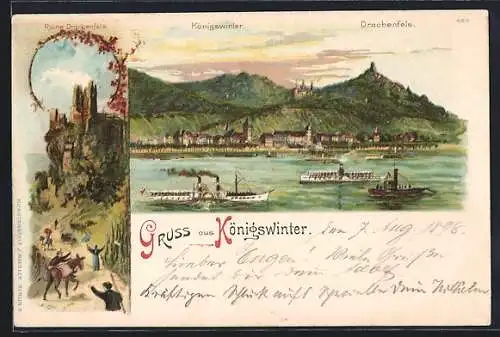 Ruine Drachenfels.
Königswinter.
Drachenfels.
GRUSS aus Königswinter.
den 7. Aug. 1896.
Lieber Eugen! Viele Grüße
sendet dir dein
kräftigen Schluck auf Spezielle dein Wilhelm